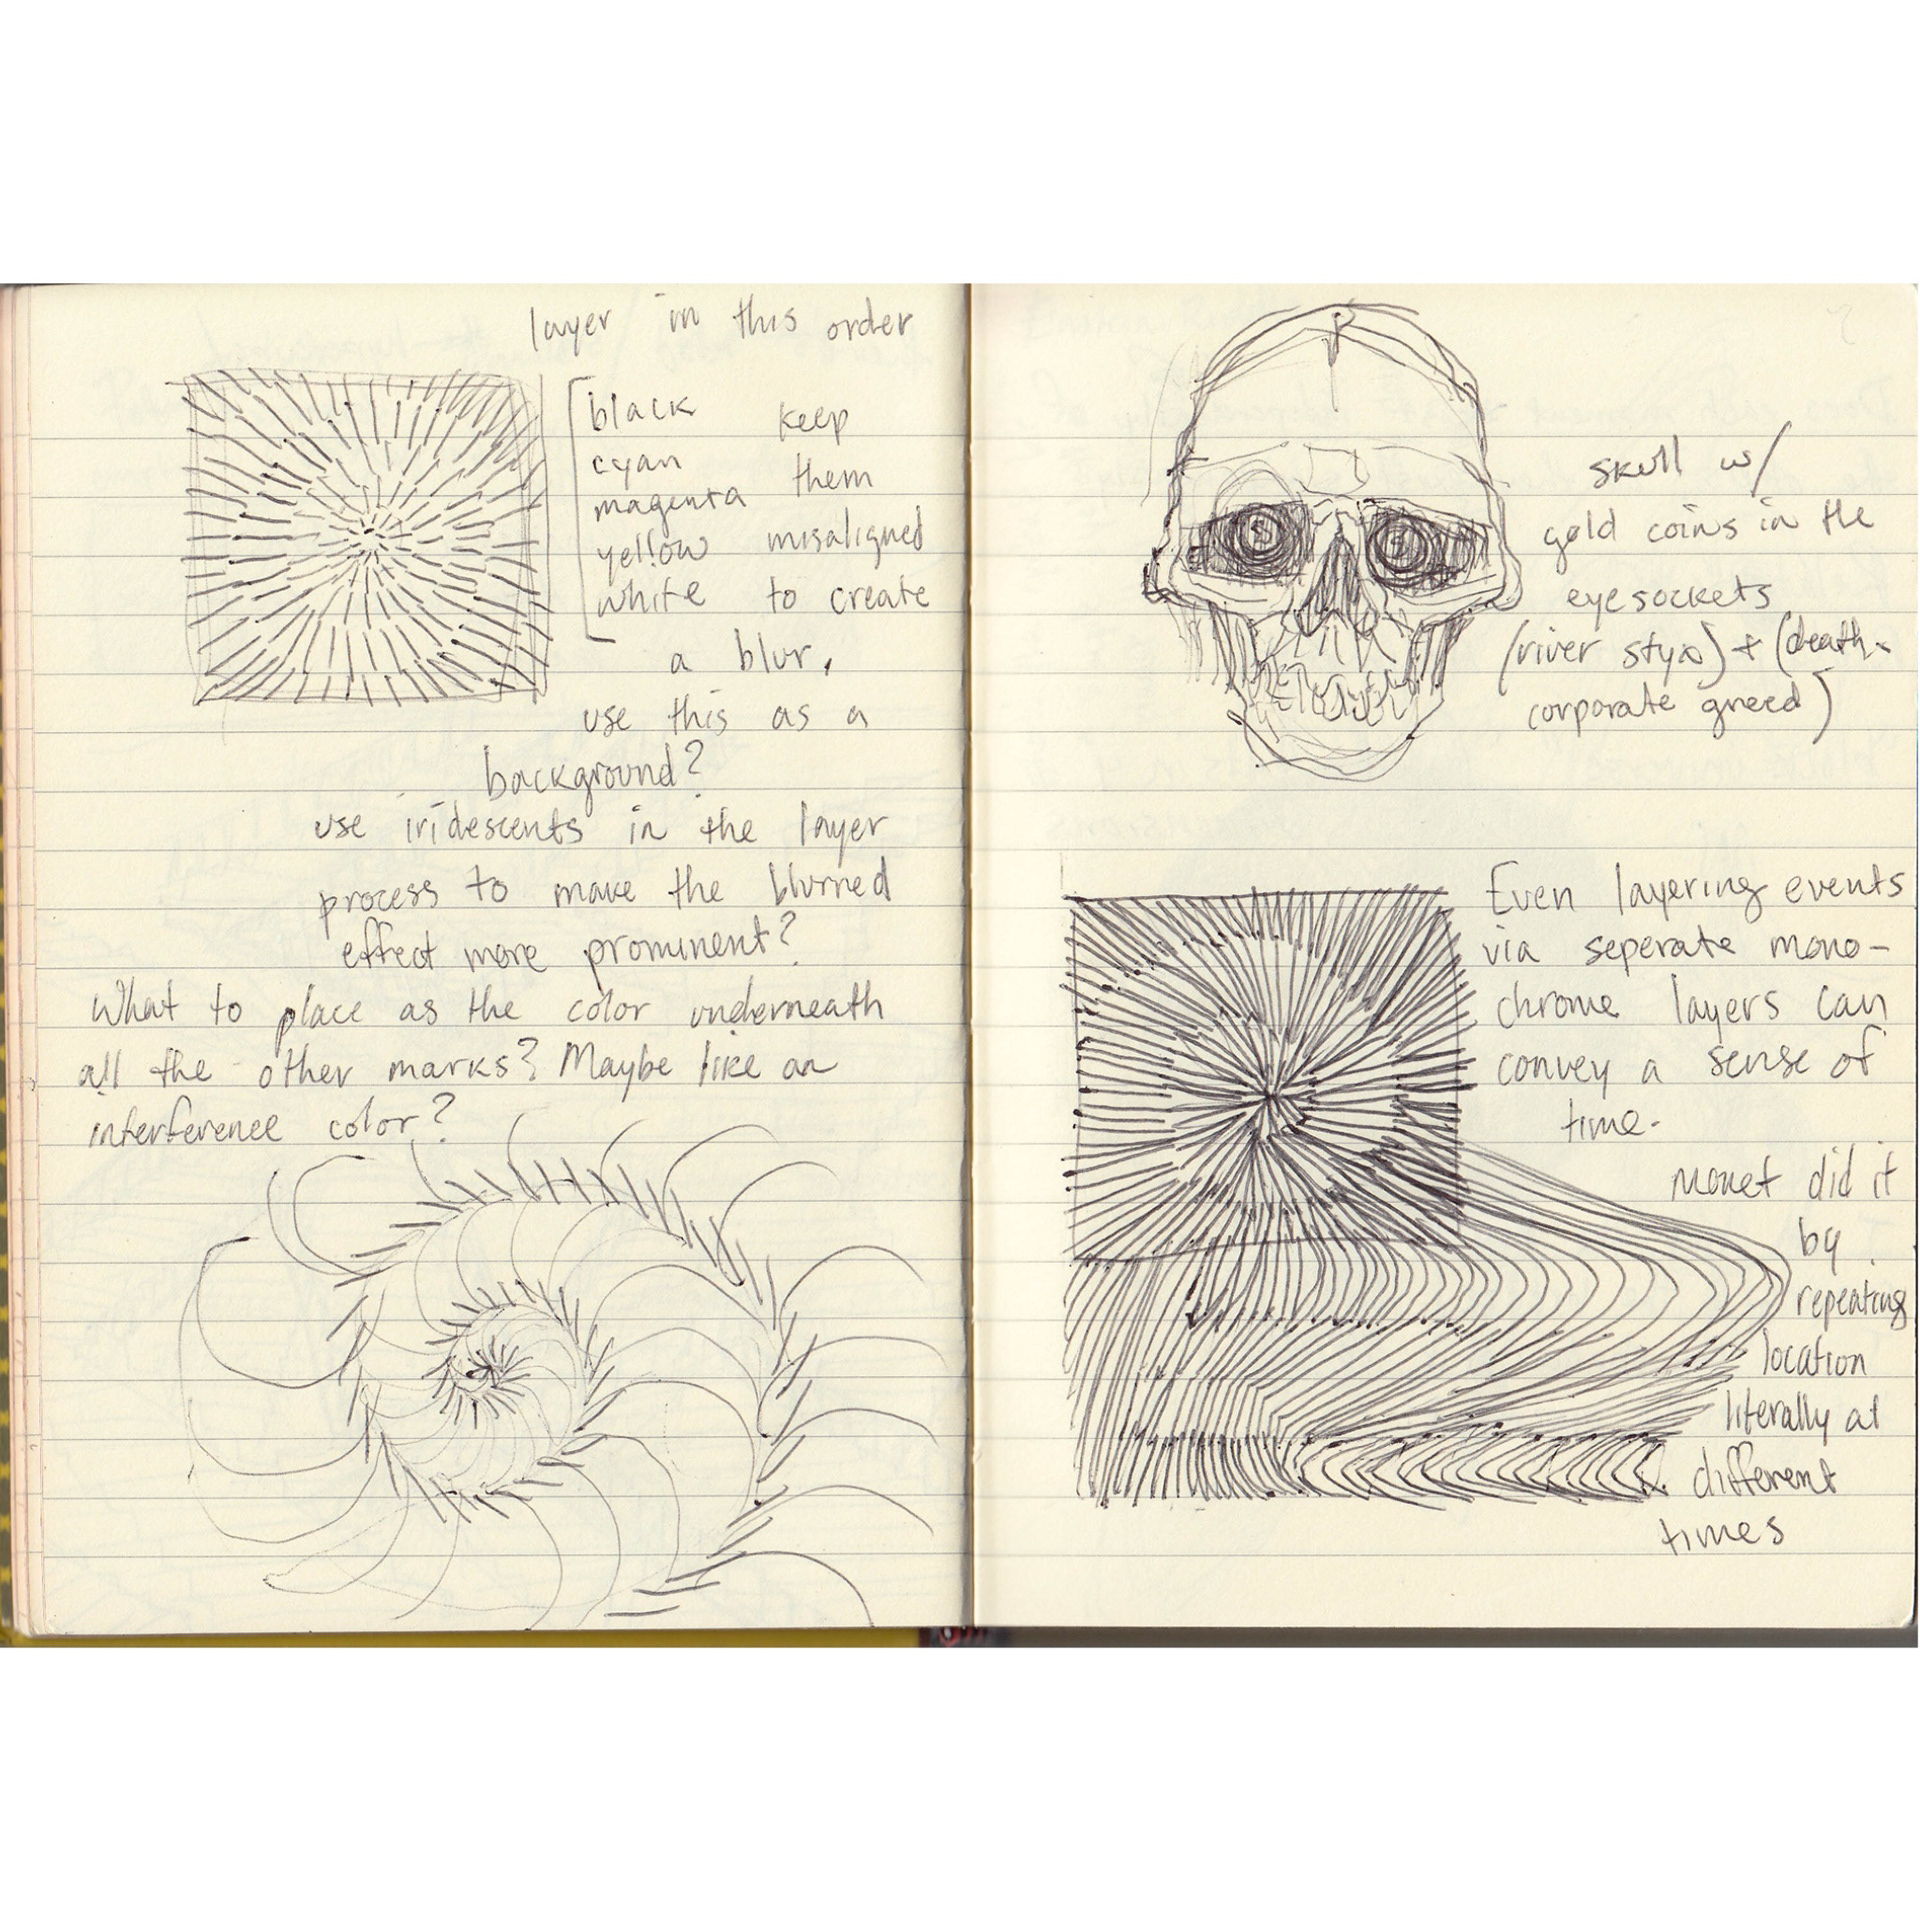 layer in this order
black
cyan
magenta
yellow
white
keep
them
misaligned
to create
a blur,
use this as a
background?
use iridescents in the layer
process to make the blurred
effect more prominent?
What to place as the color underneath
all the other marks? Maybe like an
interference color?
skull w/
gold coins in the
eyesockets
(river styx) + (death-
corporate greed)
Even layering events
via seperate mono-
chrome layers can
convey a sense of
time.
monet did it
by
repeating
location
literally at
different
times